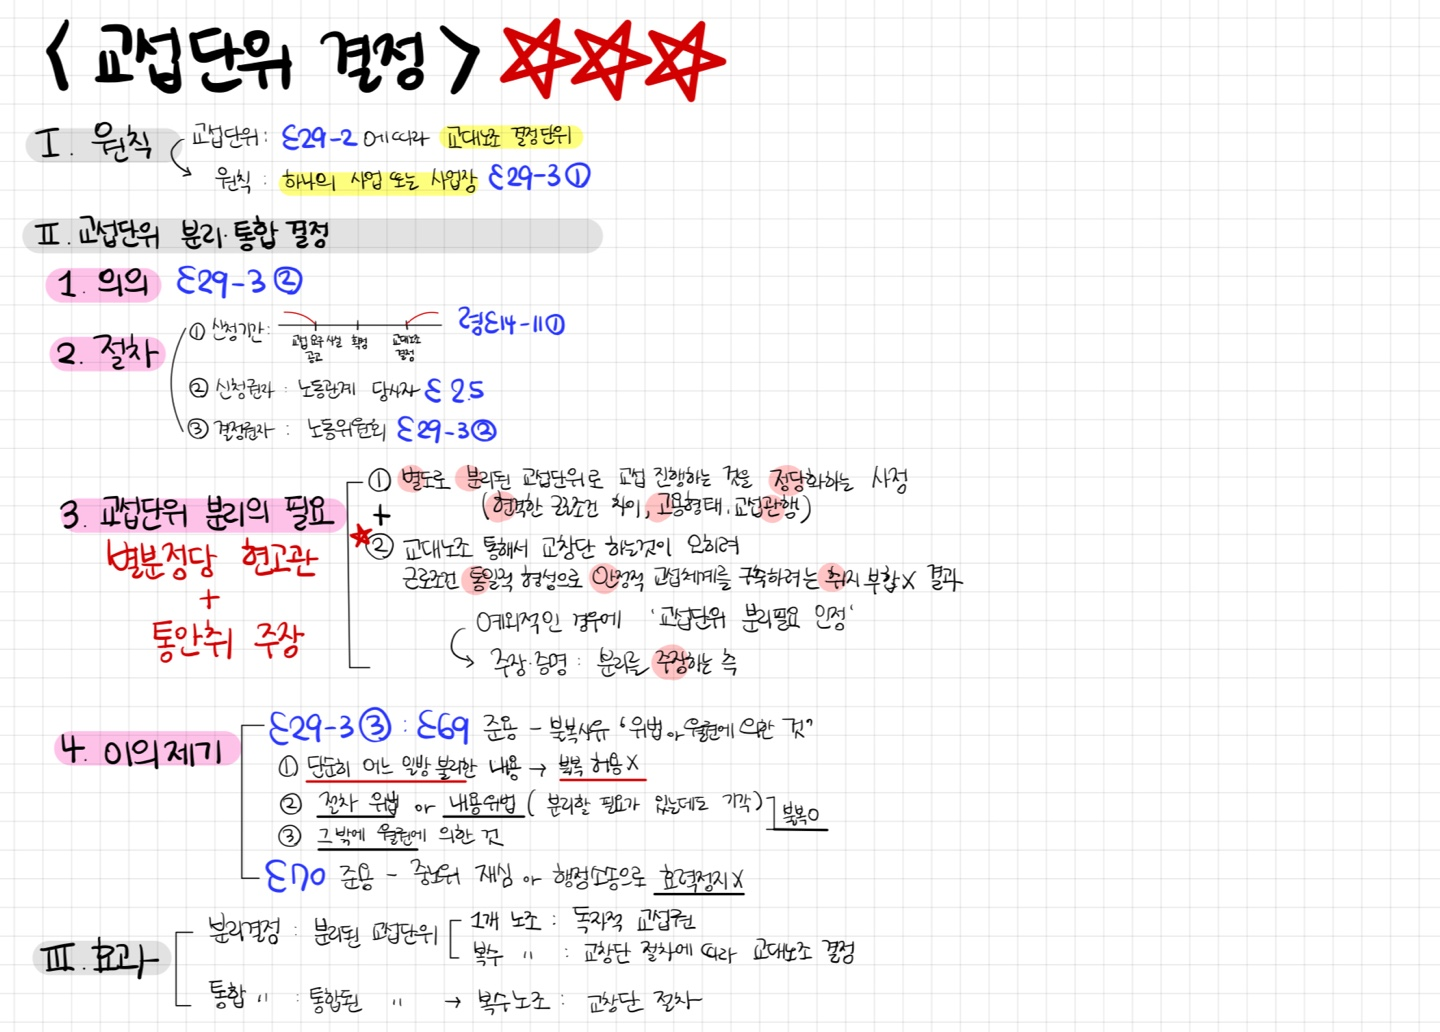 < 교섭단위 결정 > ☆☆☆
I. 원칙
교섭단위 : §29-2 에 따라 교대노조 결정단위
원칙 : 하나의 사업 또는 사업장 §29-3①
II. 교섭단위 분리·통합 결정
1. 의의 §29-3②
2. 절차
① 신청기간 : 교섭요구 사실 공고 확정 교대노조 결정 령§14-11①
② 신청권자 : 노동관계 당사자 §2.5
③ 결정권자 : 노동위원회 §29-3②
3. 교섭단위 분리의 필요
별분정당 현고관
+
통안취 주장
① 별도로 분리된 교섭단위로 교섭 진행하는 것을 정당화하는 사정
(현격한 근로조건 차이, 고용형태, 교섭관행)
+
☆② 교대노조 통해서 교창단 하는것이 오히려
근로조건 통일적 형성으로 안정적 교섭체계를 구축하려는 취지 부합X 결과
예외적인 경우에 '교섭단위 분리필요 인정'
주장·증명 : 분리를 주장하는 측
4. 이의제기
§29-3③ : §69 준용 - 불복사유 "위법 or 월권에 의한 것"
① 단순히 어느 일방 불리한 내용 → 불복 허용X
② 절차 위법 or 내용위법 ( 분리할 필요가 있는데도 기각)
불복O
③ 그 밖에 월권에 의한 것
§70 준용 - 중노위 재심 or 행정소송으로 효력정지X
III. 효과
분리결정 : 분리된 교섭단위
1개 노조 : 독자적 교섭권
복수 〃 : 교창단 절차에 따라 교대노조 결정
통합 〃 : 통합된 〃 → 복수노조 : 교창단 절차